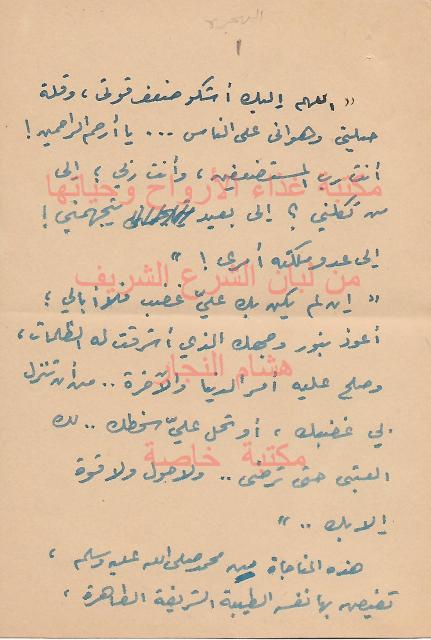 الهجرة
١
« اللهم إليك أشكو ضعف قوتى ، وقلة
حيلتي وهواني على الناس ... يا أرحم الراحمين !
أنت رب المستضعفين ، وأنت ربي ؛ إلى
مكتبة غذاء الأرواح وحياتها
من تكلني ؟ إلى بعيد يتجهمني !
إلى عدو ملكته أمري ! »
من لبنان الشرع الشريف
« إن لم يكن بك عليّ غضب فلا أبالي ؛
أعوذ بنور وجهك الذي أشرقت له الظلمات ،
هشام النجار
وصلح عليه أمر الدنيا والآخرة .. من أن تنزل
بي غضبك ، أو تحل عليّ سخطك .. لك
مكتبة خاصة
العتبى حتى ترضى .. ولا حول ولا قوة
إلا بك .. »
هذه المناجاة من محمد صلى الله عليه وسلم ،
تفيض بها نفسه الطيبة الشريفة الطاهرة ،